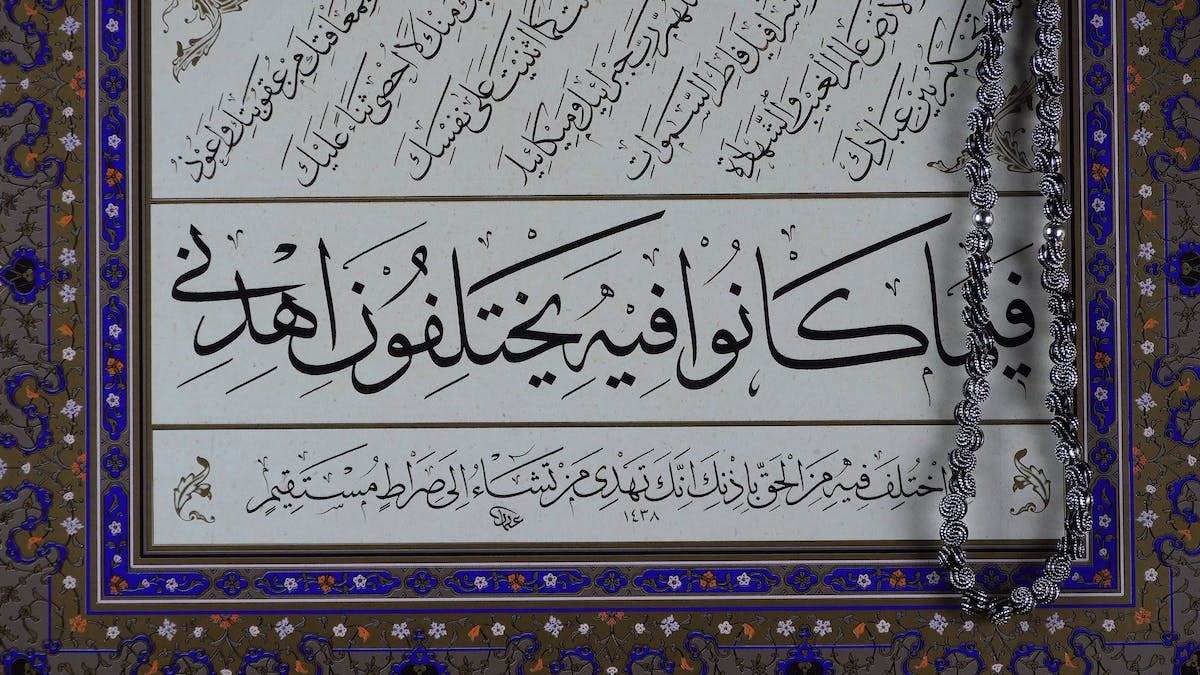 وبمعافاتك من عقوبتك واعوذ
منك لا احصى ثناء عليك
كما اثنيت على نفسك
رب جبرئيل وميكائيل
فاطر السموات
عالم الغيب والشهادة
بين عبادك
فيما كانوا فيه يختلفون اهدني
اختلف فيه من الحق باذنك انك تهدى من تشاء الى صراط مستقيم
١٤٣٨